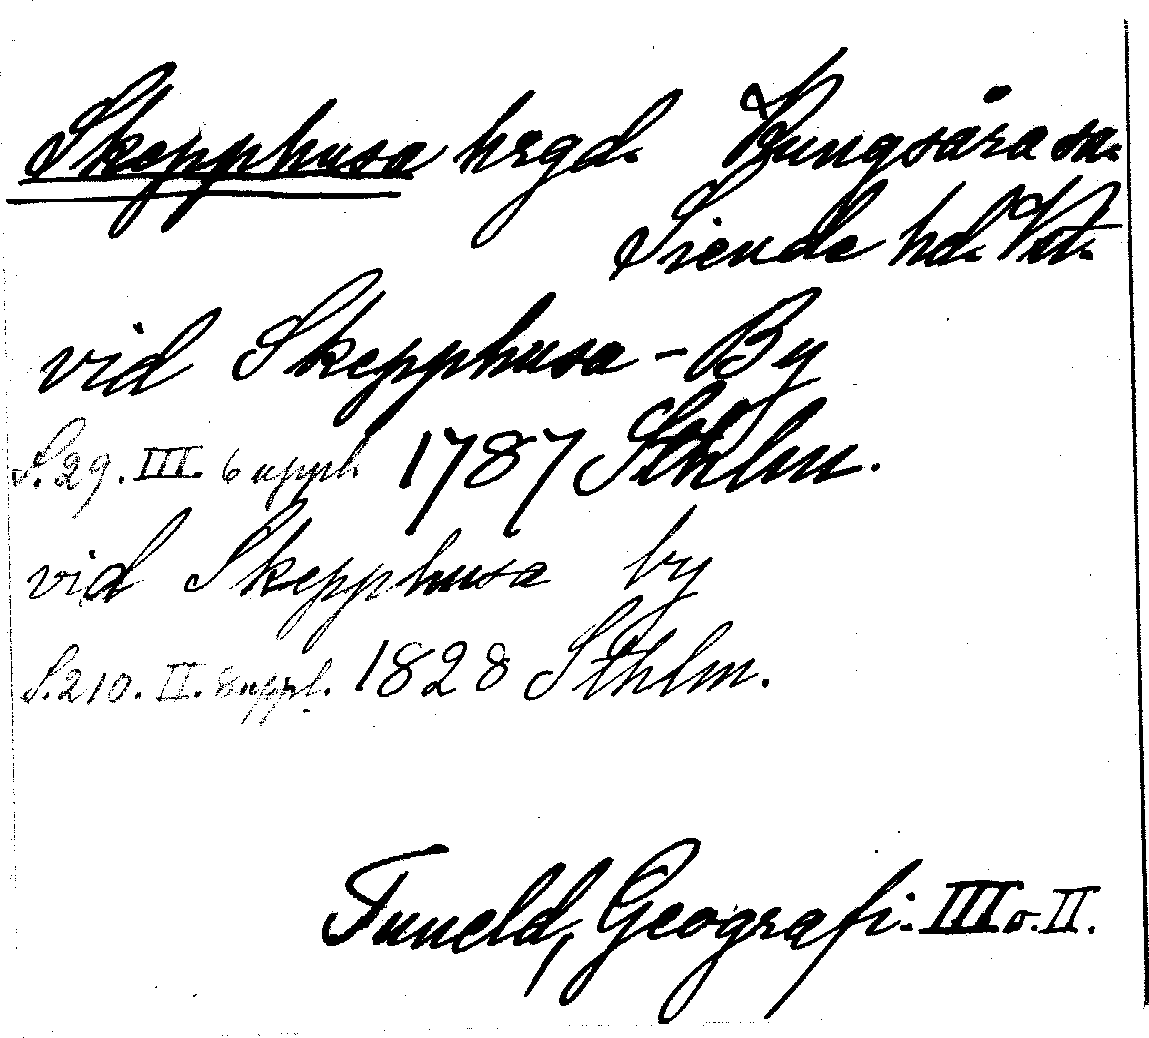 Skepphusa hrgd. Kungsåra sn.
Siende hd. Vstl.
vid Skepphusa - By
S. 29. III. 6 uppl. 1787 Sthlm.
vid Skepphusa by
S. 210. II. 8 uppl. 1828 Sthlm.
Tuneld, Geografi. III o. II.